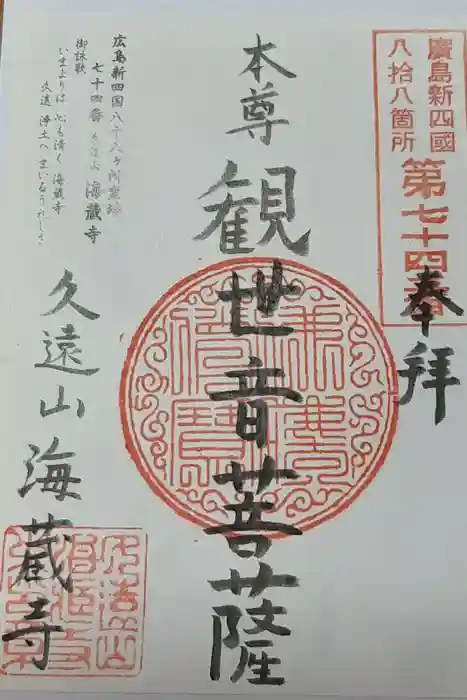 廣島新四國
八拾八箇所
第七十四番
奉拝
本尊
観世音菩薩
広島新四国八十八ヶ所霊場
七十四番
海蔵寺
御詠歌
いまよりは 心も清く 海蔵寺
久遠 浄土へ まいるうれしさ
久遠山
海蔵寺